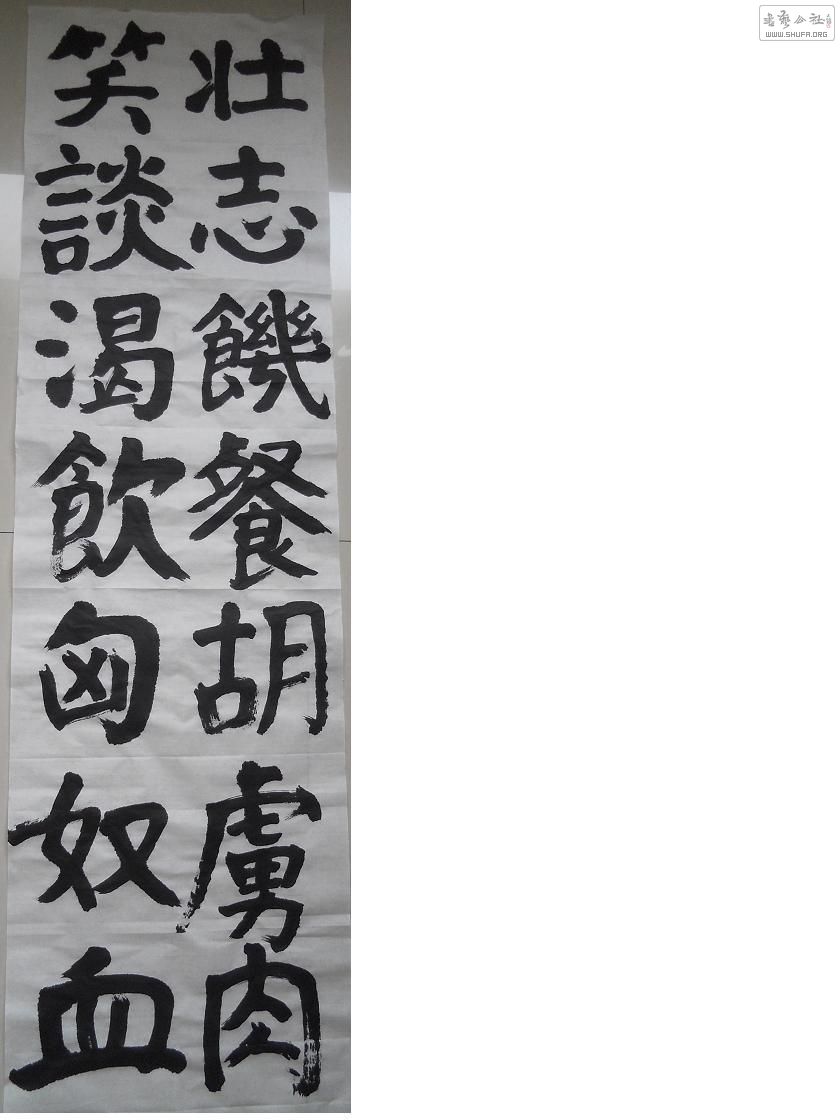 壮志饑餐胡虜肉
笑談渴飲匈奴血
書藝公社
WWW.SHUFA.ORG